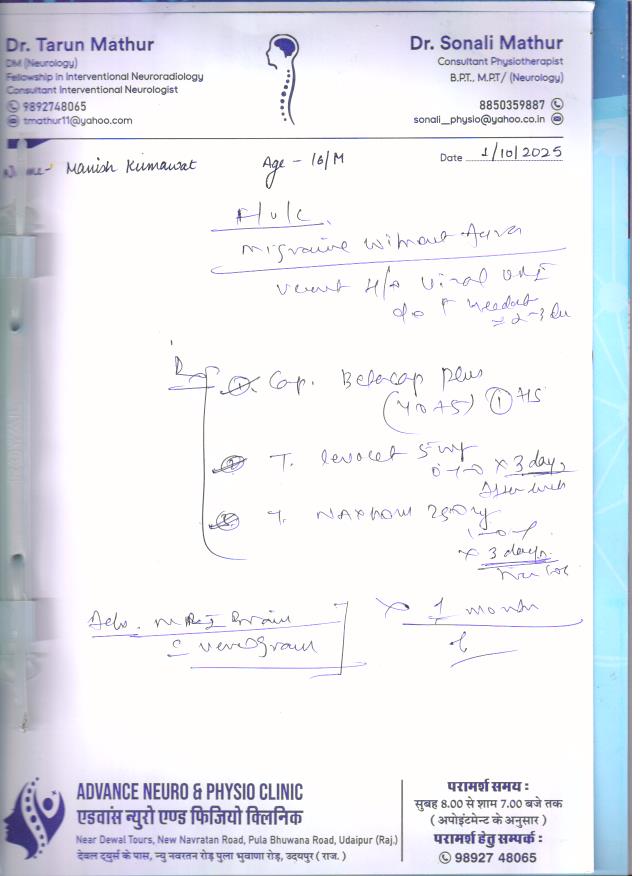 Dr. Tarun Mathur
DM (Neurology)
Fellowship in Interventional Neuroradiology
Consultant Interventional Neurologist
9892748065
tmathur11@yahoo.com
Dr. Sonali Mathur
Consultant Physiotherapist
B.P.T., M.P.T/ (Neurology)
8850359887
sonali_physio@yahoo.co.in
Manish Kumawat
Age - 16/M
Date 1/10/2025
F/u/c
Migraine without Aura
recent H/o viral
headache
2-3
Rx
1. Cap. Betacap Plus
(40+5) 1 HS
2. T. levocet 5 mg
x 3 days
3. T. 250 mg
1-0-1
x 3 days
Adv. MRI Brain
x 1 month
venogram
ADVANCE NEURO & PHYSIO CLINIC
एडवांस न्युरो एण्ड फिजियो क्लिनिक
Near Dewal Tours, New Navratan Road, Pula Bhuwana Road, Udaipur (Raj.)
देवल ट्युर्स के पास, न्यु नवरतन रोड़ पुला भुवाणा रोड़, उदयपुर ( राज. )
परामर्श समय :
सुबह 8.00 से शाम 7.00 बजे तक
( अपोइंटमेन्ट के अनुसार )
परामर्श हेतु सम्पर्क :
98927 48065